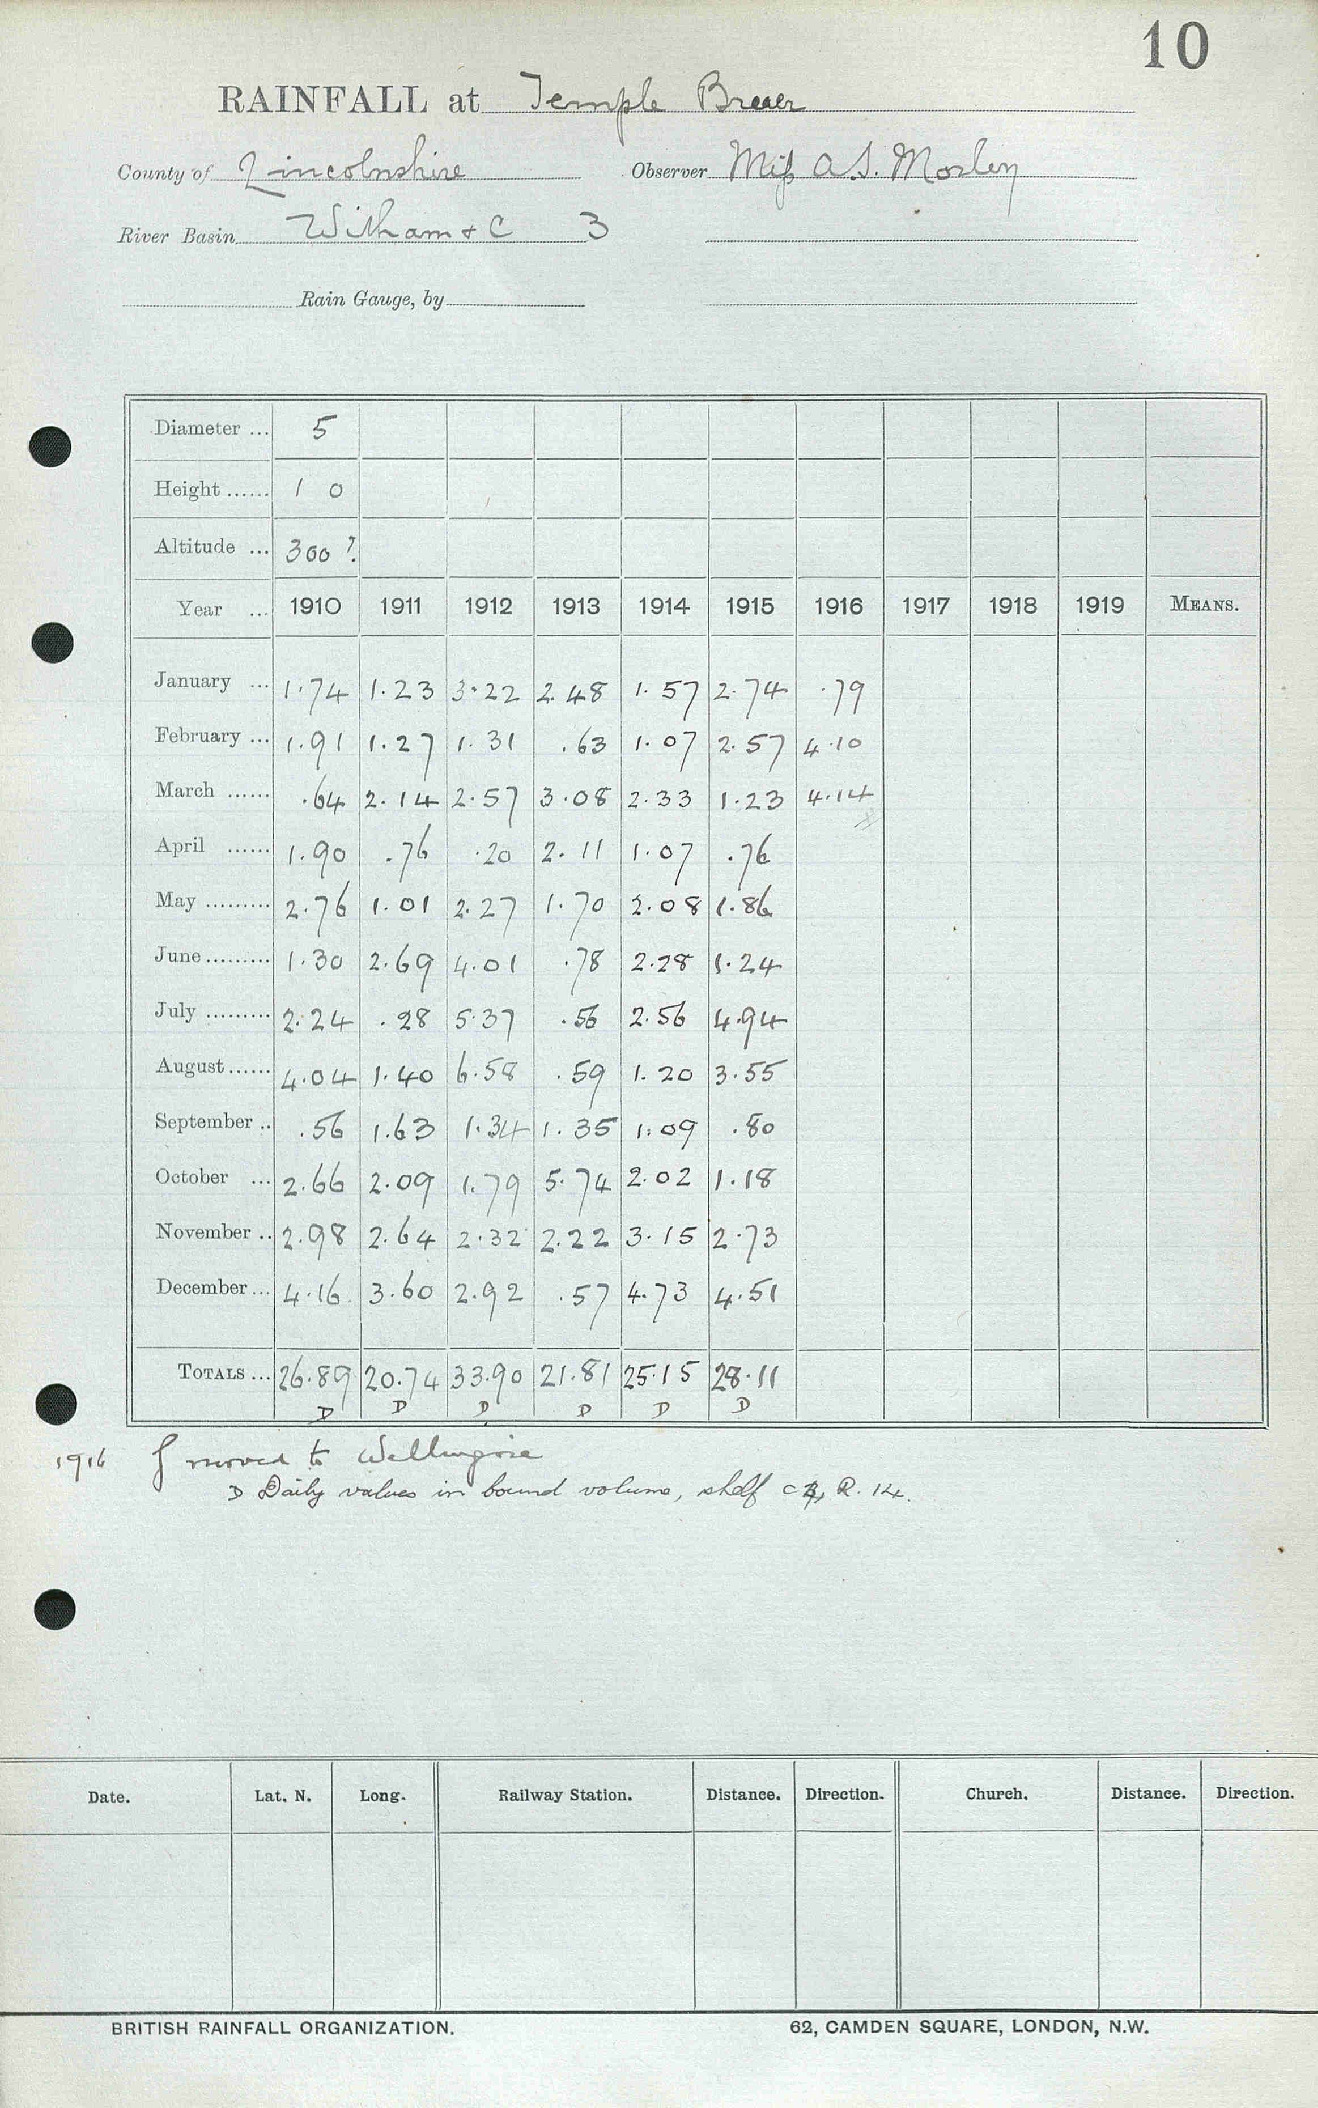 10
RAINFALL at Temple Bruer
County of Lincolnshire Observer Miss A.S. Morley
River Basin Witham & C 3
Rain Gauge, by
Diameter ... 5
Height ...... 1 0
Altitude ... 300 ?
Year ... 1910 1911 1912 1913 1914 1915 1916 1917 1918 1919 MEANS.
January ... 1.74 1.23 3.22 2.48 1.57 2.74 .79
February ... 1.91 1.27 1.31 .63 1.07 2.57 4.10
March ...... .64 2.14 2.57 3.08 2.33 1.23 4.14
April ...... 1.90 .76 .20 2.11 1.07 .76
May ......... 2.76 1.01 2.27 1.70 2.08 1.86
June ......... 1.30 2.69 4.01 .78 2.28 1.24
July ......... 2.24 .28 5.37 .56 2.56 4.94
August ...... 4.04 1.40 6.58 .59 1.20 3.55
September .. .56 1.63 1.34 1.35 1.09 .80
October ... 2.66 2.09 1.79 5.74 2.02 1.18
November .. 2.98 2.64 2.32 2.22 3.15 2.73
December ... 4.16 3.60 2.92 .57 4.73 4.51
TOTALS ... 26.89 20.74 33.90 21.81 25.15 28.11
D D D D D D
1916 moved to Wellingore
D Daily values in bound volume, shelf R. 14.
Date. Lat. N. Long. Railway Station. Distance. Direction. Church. Distance. Direction.
BRITISH RAINFALL ORGANIZATION. 62, CAMDEN SQUARE, LONDON, N.W.